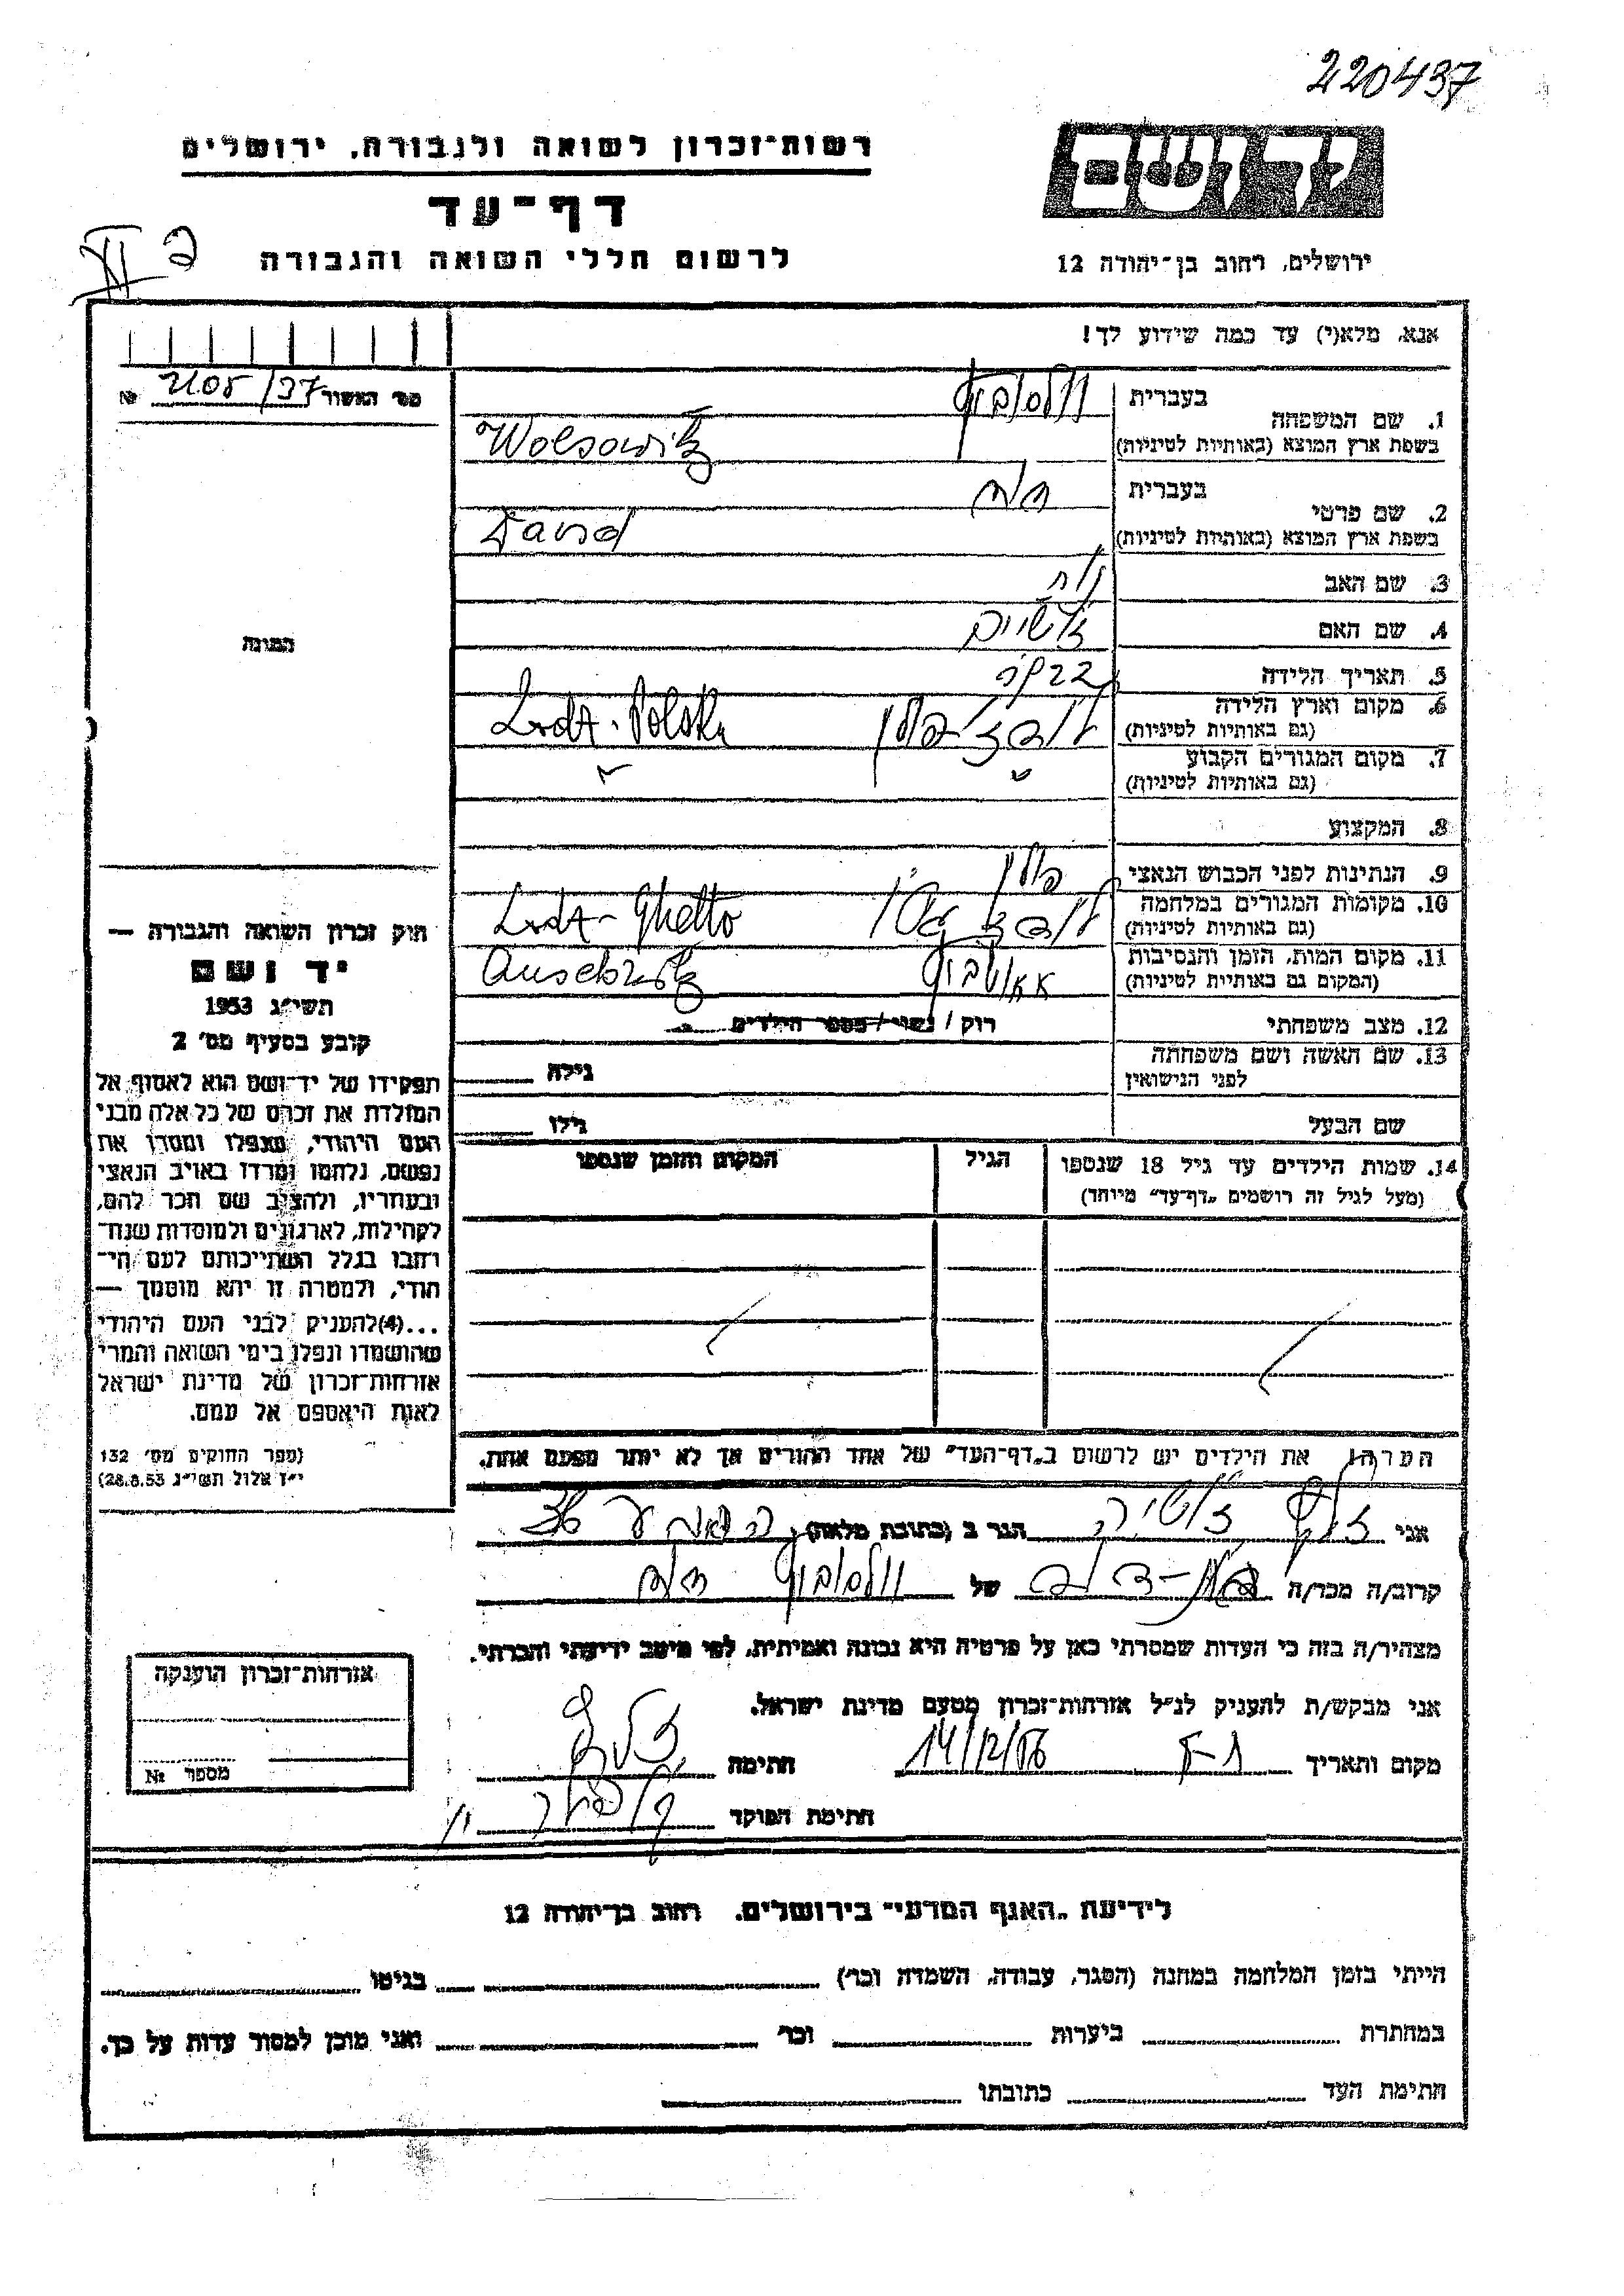 220437
רשות־זכרון לשואה ולגבורה, ירושלים
יד ושם
דף־עד
לרשום חללי השואה והגבורה
ירושלים, רחוב בן־יהודה 12
אנא, מלא(י) עד כמה שידוע לך!
מס׳ האשור 2105/37 №
1. שם המשפחה
בעברית
בשפת ארץ המוצא (באותיות לטיניות) Wolsowitz
2. שם פרטי
בעברית דוד
בשפת ארץ המוצא (באותיות לטיניות) David
3. שם האב
4. שם האם
5. תאריך הלידה
6. מקום וארץ הלידה
(גם באותיות לטיניות) Lodz - Polska
7. מקום המגורים הקבוע
(גם באותיות לטיניות)
8. המקצוע
9. הנתינות לפני הכבוש הנאצי פולין
10. מקומות המגורים במלחמה
(גם באותיות לטיניות) Lodz - Ghetto
11. מקום המות, הזמן והנסיבות
(המקום גם באותיות לטיניות)
12. מצב משפחתי רוק / נשוי / מספר הילדים
13. שם האשה ושם משפחתה
לפני הנישואין
גילה
שם הבעל
גילו
14. שמות הילדים עד גיל 18 שנספו
(מעל לגיל זה רושמים „דף־עד” מיוחד)
הגיל
המקום והזמן שנספו
הערה: את הילדים יש לרשום ב„דף־העד” של אחד ההורים אך לא יותר מפעם אחת.
התמונה
חוק זכרון השואה והגבורה —
יד ושם
תשי״ג 1953
קובע בסעיף מס׳ 2
תפקידו של יד־ושם הוא לאסוף אל
המולדת את זכרם של כל אלה מבני
העם היהודי, שנפלו ומסרו את
נפשם, נלחמו ומרדו באויב הנאצי
ובעוזריו, ולהציב שם וזכר להם,
לקהילות, לארגונים ולמוסדות שנח־
רבו בגלל השתייכותם לעם הי־
הודי, ולמטרה זו יהא מוסמך —
...(4)להעניק לבני העם היהודי
שהושמדו ונפלו בימי השואה והמרי
אזרחות־זכרון של מדינת ישראל
לאות היאספם אל עמם.
(ספר החוקים מס׳ 132
י״ז אלול תשי״ג 28.8.53)
אני הגר ב (כתובת מלאה)
קרוב/ה מכר/ה של דוד
מצהיר/ה בזה כי העדות שמסרתי כאן על פרטיה היא נכונה ואמיתית, לפי מיטב ידיעתי והכרתי.
אני מבקש/ת להעניק לנ״ל אזרחות־זכרון מטעם מדינת ישראל.
מקום ותאריך 14/12/56 חתימה
חתימת הפוקד
אזרחות־זכרון הוענקה
מספר №
לידיעת „האגף המדעי” בירושלים, רחוב בן־יהודה 12
הייתי בזמן המלחמה במחנה (הסגר, עבודה, השמדה וכו׳) בגיטו
במחתרת ביערות וכו׳ ואני מוכן למסור עדות על כך.
חתימת העד כתובתו